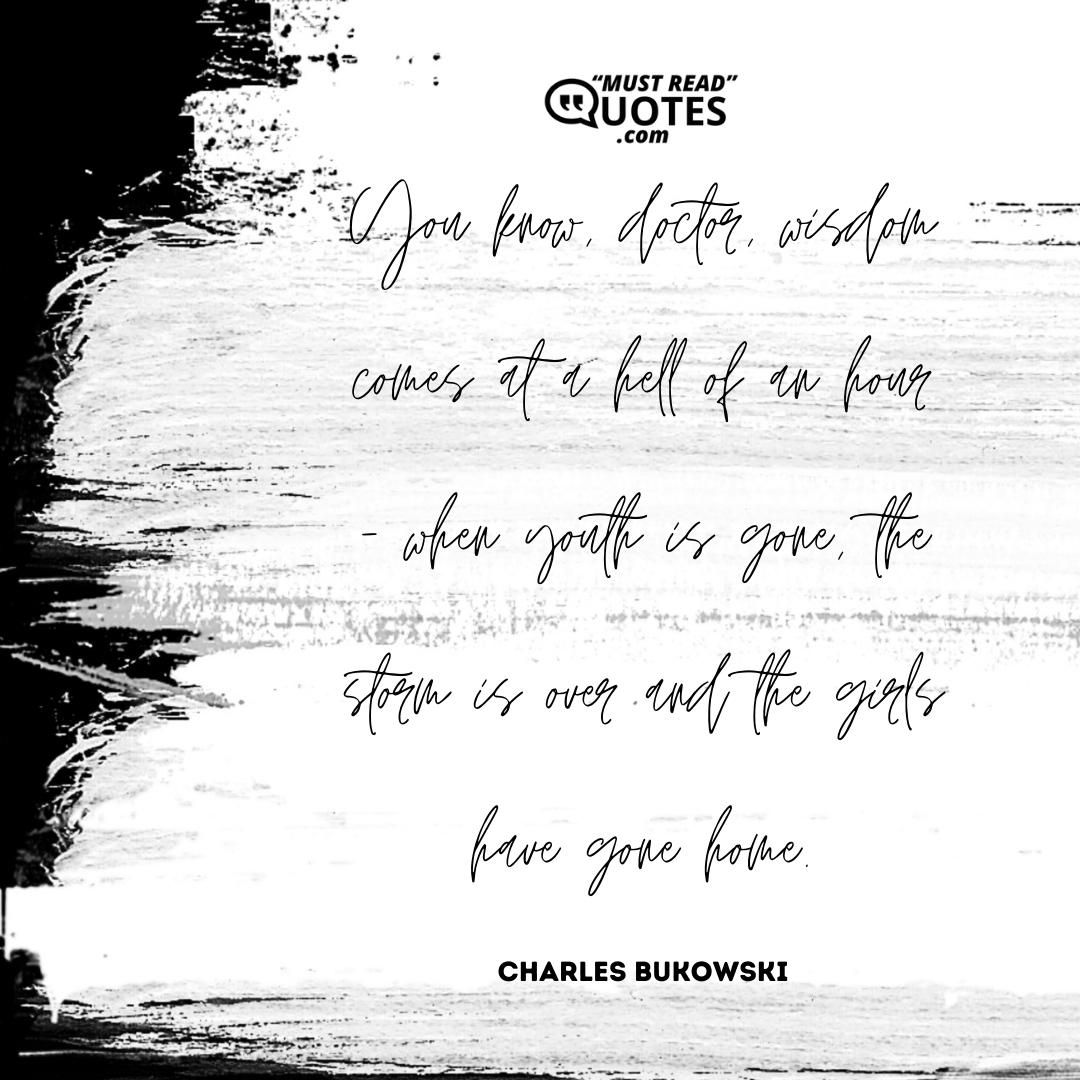 "MUST READ"
QUOTES
.com
You know, doctor, wisdom
comes at a hell of an hour
- when youth is gone, the
storm is over and the girls
have gone home.
CHARLES BUKOWSKI